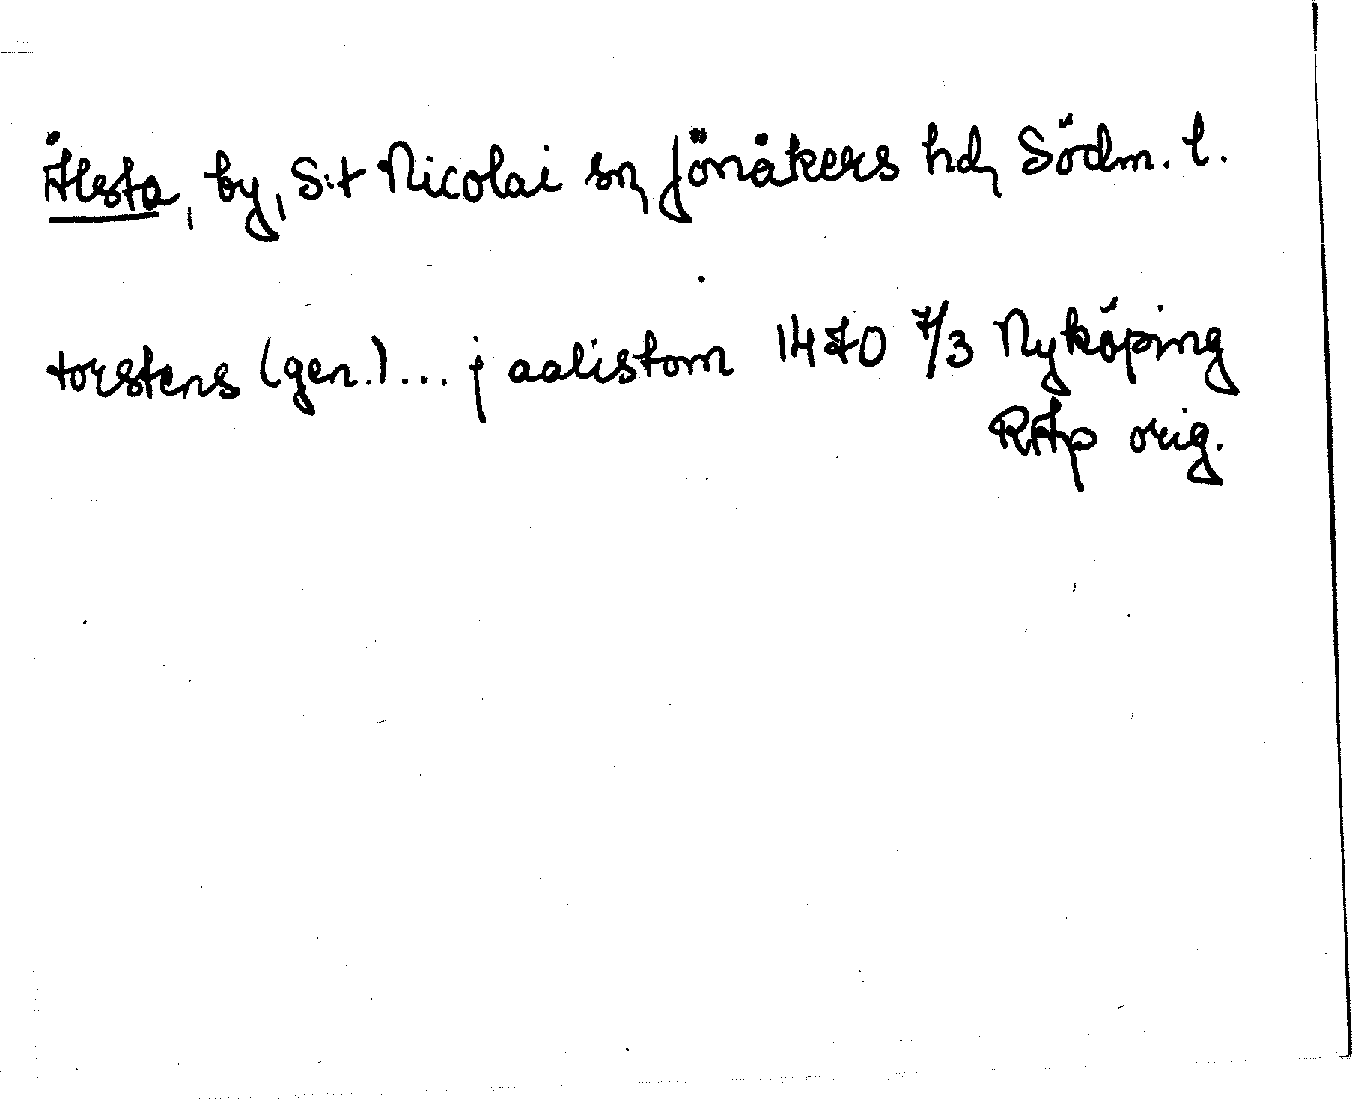 Ålsta, by, S:t Nicolai sn, Jönåkers hd, Södm. l.
torstens (gen.) ... j aalistom 1470 7/3 Nyköping
RAp orig.